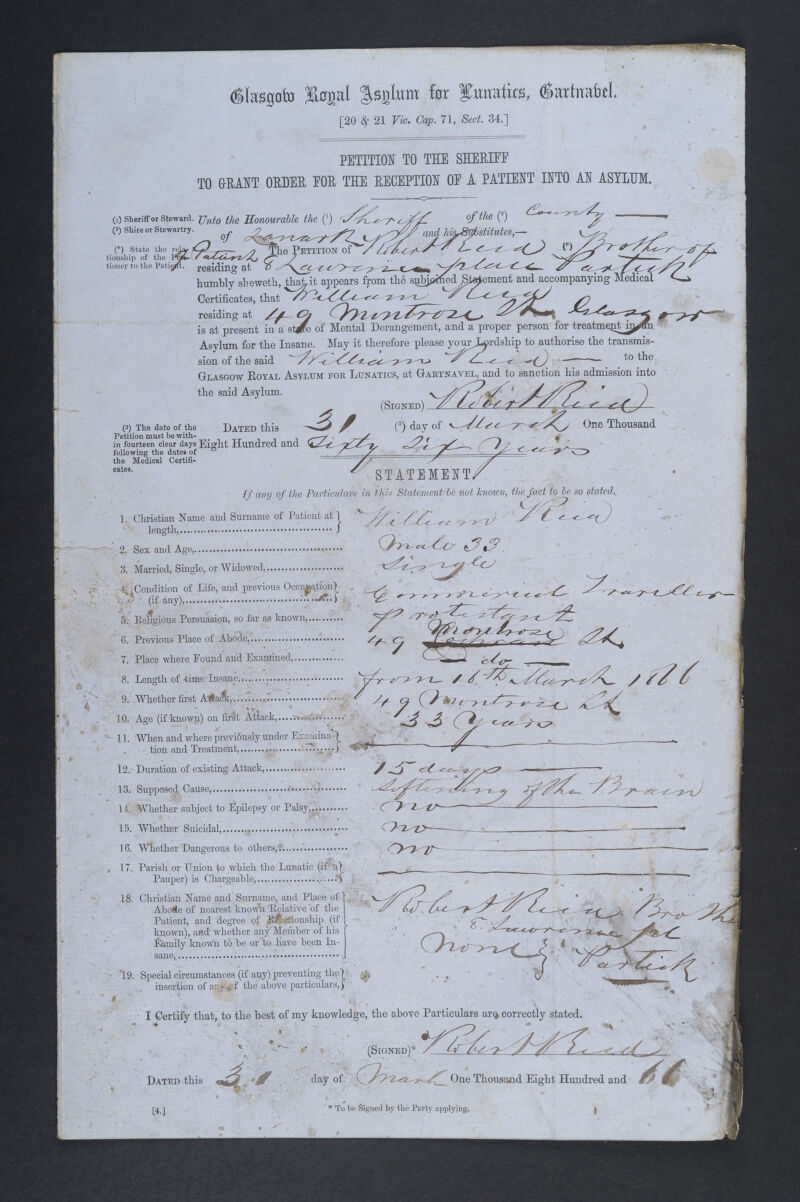 Glasgow Royal Asylum for Lunatics, Gartnavel.
[20 & 21 Vic. Cap. 71, Sect. 34.]
PETITION TO THE SHERIFF
TO GRANT ORDER FOR THE RECEPTION OF A PATIENT INTO AN ASYLUM.
(1) Sheriff or Steward. Unto the Honourable the (1) Sheriff of the (2) County
(2) Shire or Stewartry. of Lanark and his Substitutes,—
(*) State the relationship of the Petitioner to the Patient.
The PETITION of Robert Reid (*) Brother of
Patient
residing at 8 Lawrence place Partick
humbly sheweth, that it appears from the subjoined Statement and accompanying Medical
Certificates, that William Reid
residing at 49 Montrose St. Glasgow
is at present in a state of Mental Derangement, and a proper person for treatment in an
Asylum for the Insane. May it therefore please your Lordship to authorise the transmis-
sion of the said William Reid — to the
GLASGOW ROYAL ASYLUM FOR LUNATICS, AT GARTNAVEL, and to sanction his admission into
the said Asylum.
(SIGNED) Robert Reid
(3) The date of the
Petition must be with-
in fourteen clear days
following the dates of
the Medical Certifi-
cates.
DATED this 31 (3) day of March One Thousand
Eight Hundred and Sixty Six Years
STATEMENT.
If any of the Particulars in this Statement be not known, the fact to be so stated.
1. Christian Name and Surname of Patient at
length, William Reid
2. Sex and Age, Male 33
3. Married, Single, or Widowed, Single
4. Condition of Life, and previous Occupation
(if any), Commercial Traveller
5. Religious Persuasion, so far as known, protestant
6. Previous Place of Abode, 49 Montrose St
7. Place where Found and Examined, — do —
8. Length of time Insane, from 16th March 1866
9. Whether first Attack, 49 Montrose St
10. Age (if known) on first Attack, 33 Years
11. When and where previously under Examina-
tion and Treatment,
12. Duration of existing Attack, 15 days
13. Supposed Cause, Softining of the Brain
14. Whether subject to Epilepsy or Palsy, no
15. Whether Suicidal, no
16. Whether Dangerous to others, no
17. Parish or Union to which the Lunatic (if a
Pauper) is Chargeable,
18. Christian Name and Surname, and Place of
Abode of nearest known Relative of the
Patient, and degree of Relationship (if
known), and whether any Member of his
Family known to be or to have been In-
sane,
Robert Reid Brother
8 Lawrence pl
none Partick
19. Special circumstances (if any) preventing the
insertion of any of the above particulars,
I Certify that, to the best of my knowledge, the above Particulars are correctly stated.
(SIGNED)* Robert Reid
DATED this 31 day of March One Thousand Eight Hundred and 66
[4.]
* To be Signed by the Party applying.